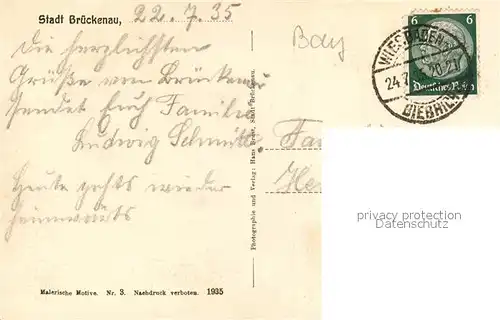 Stadt Brückenau, 22.7.35
Die herzlichsten
Grüße von Brückenau
sendet Euch Familie
Ludwig Schmitt
Heute gehts wieder
heimwärts
Malerische Motive. Nr. 3. Nachdruck verboten. 1935
Photographie und Verlag: Hans Stadt Brückenau.
Bay
6 6
Deutsches Reich
WIESBADEN-
24.7. 20-21
BIEBRICH
Fa
He
privacy protection
www.oldthing.com